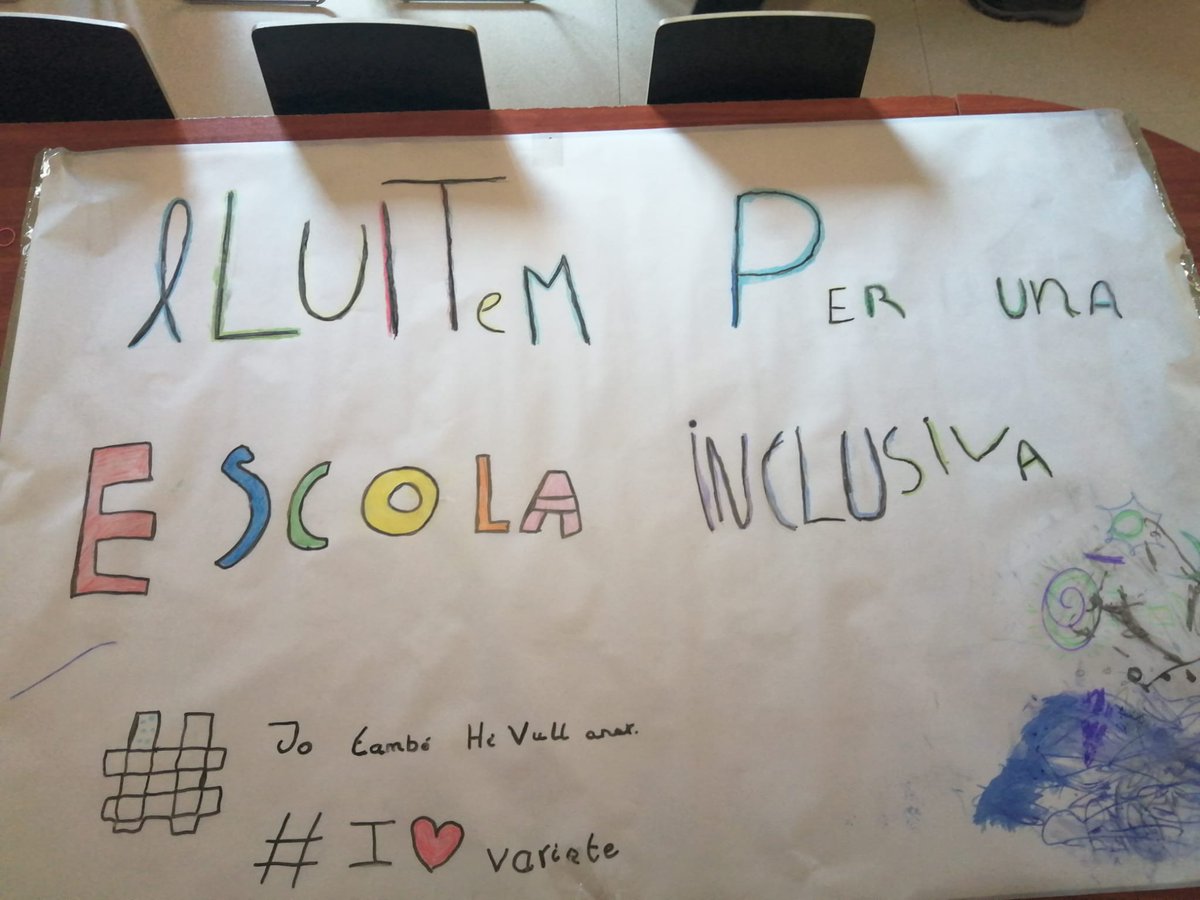 lLUITeM PER UNA
ESCOLA iNCLUSIVA
# Jo també He Vull anar.
# I ❤ variete